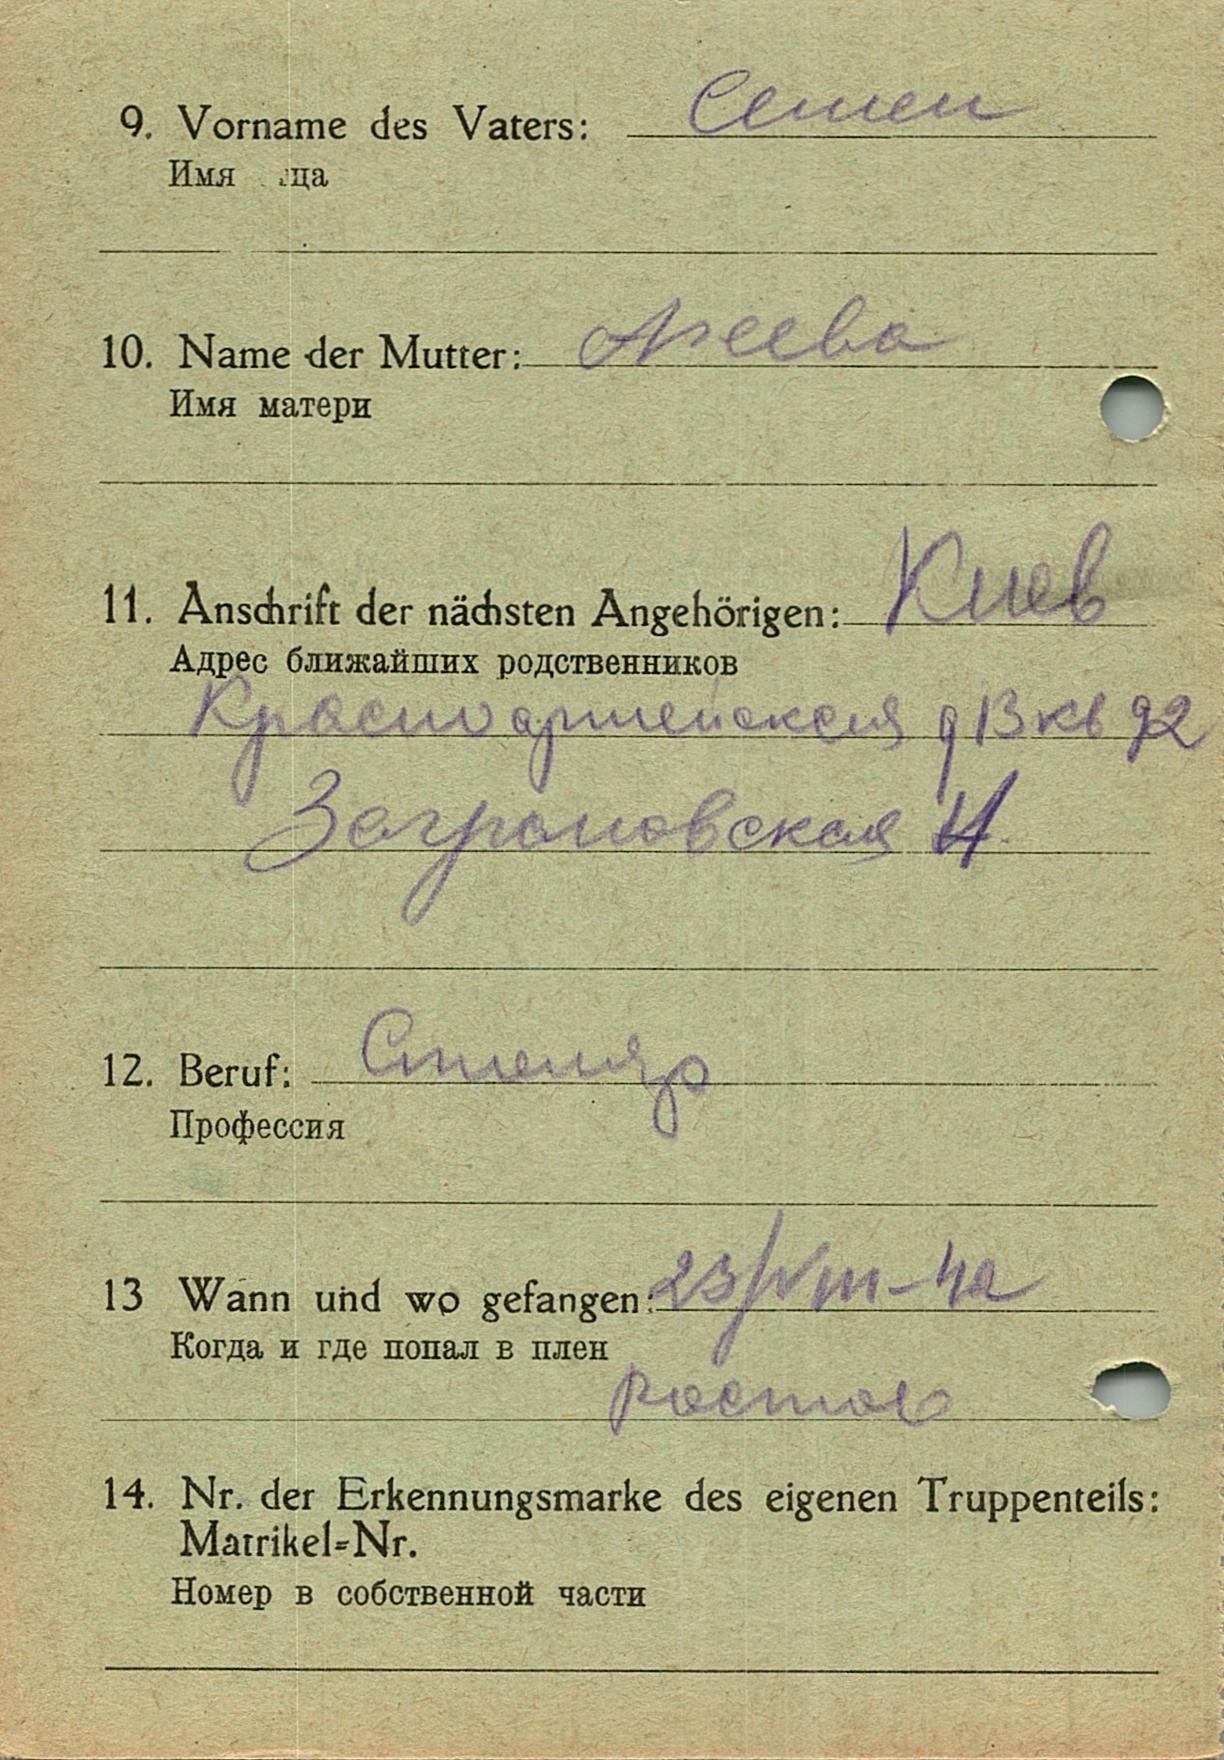 9. Vorname des Vaters: Семен
Имя ца
10. Name der Mutter: Агеева
Имя матери
11. Anschrift der nächsten Angehörigen: Киев
Адрес ближайших родственников
Красноармейская д 13 кв 92
Заграновская Н.
12. Beruf: Столяр
Профессия
13 Wann und wo gefangen: 23/VIII-42
Когда и где попал в плен
Ростов
14. Nr. der Erkennungsmarke des eigenen Truppenteils:
Matrikel-Nr.
Номер в собственной части